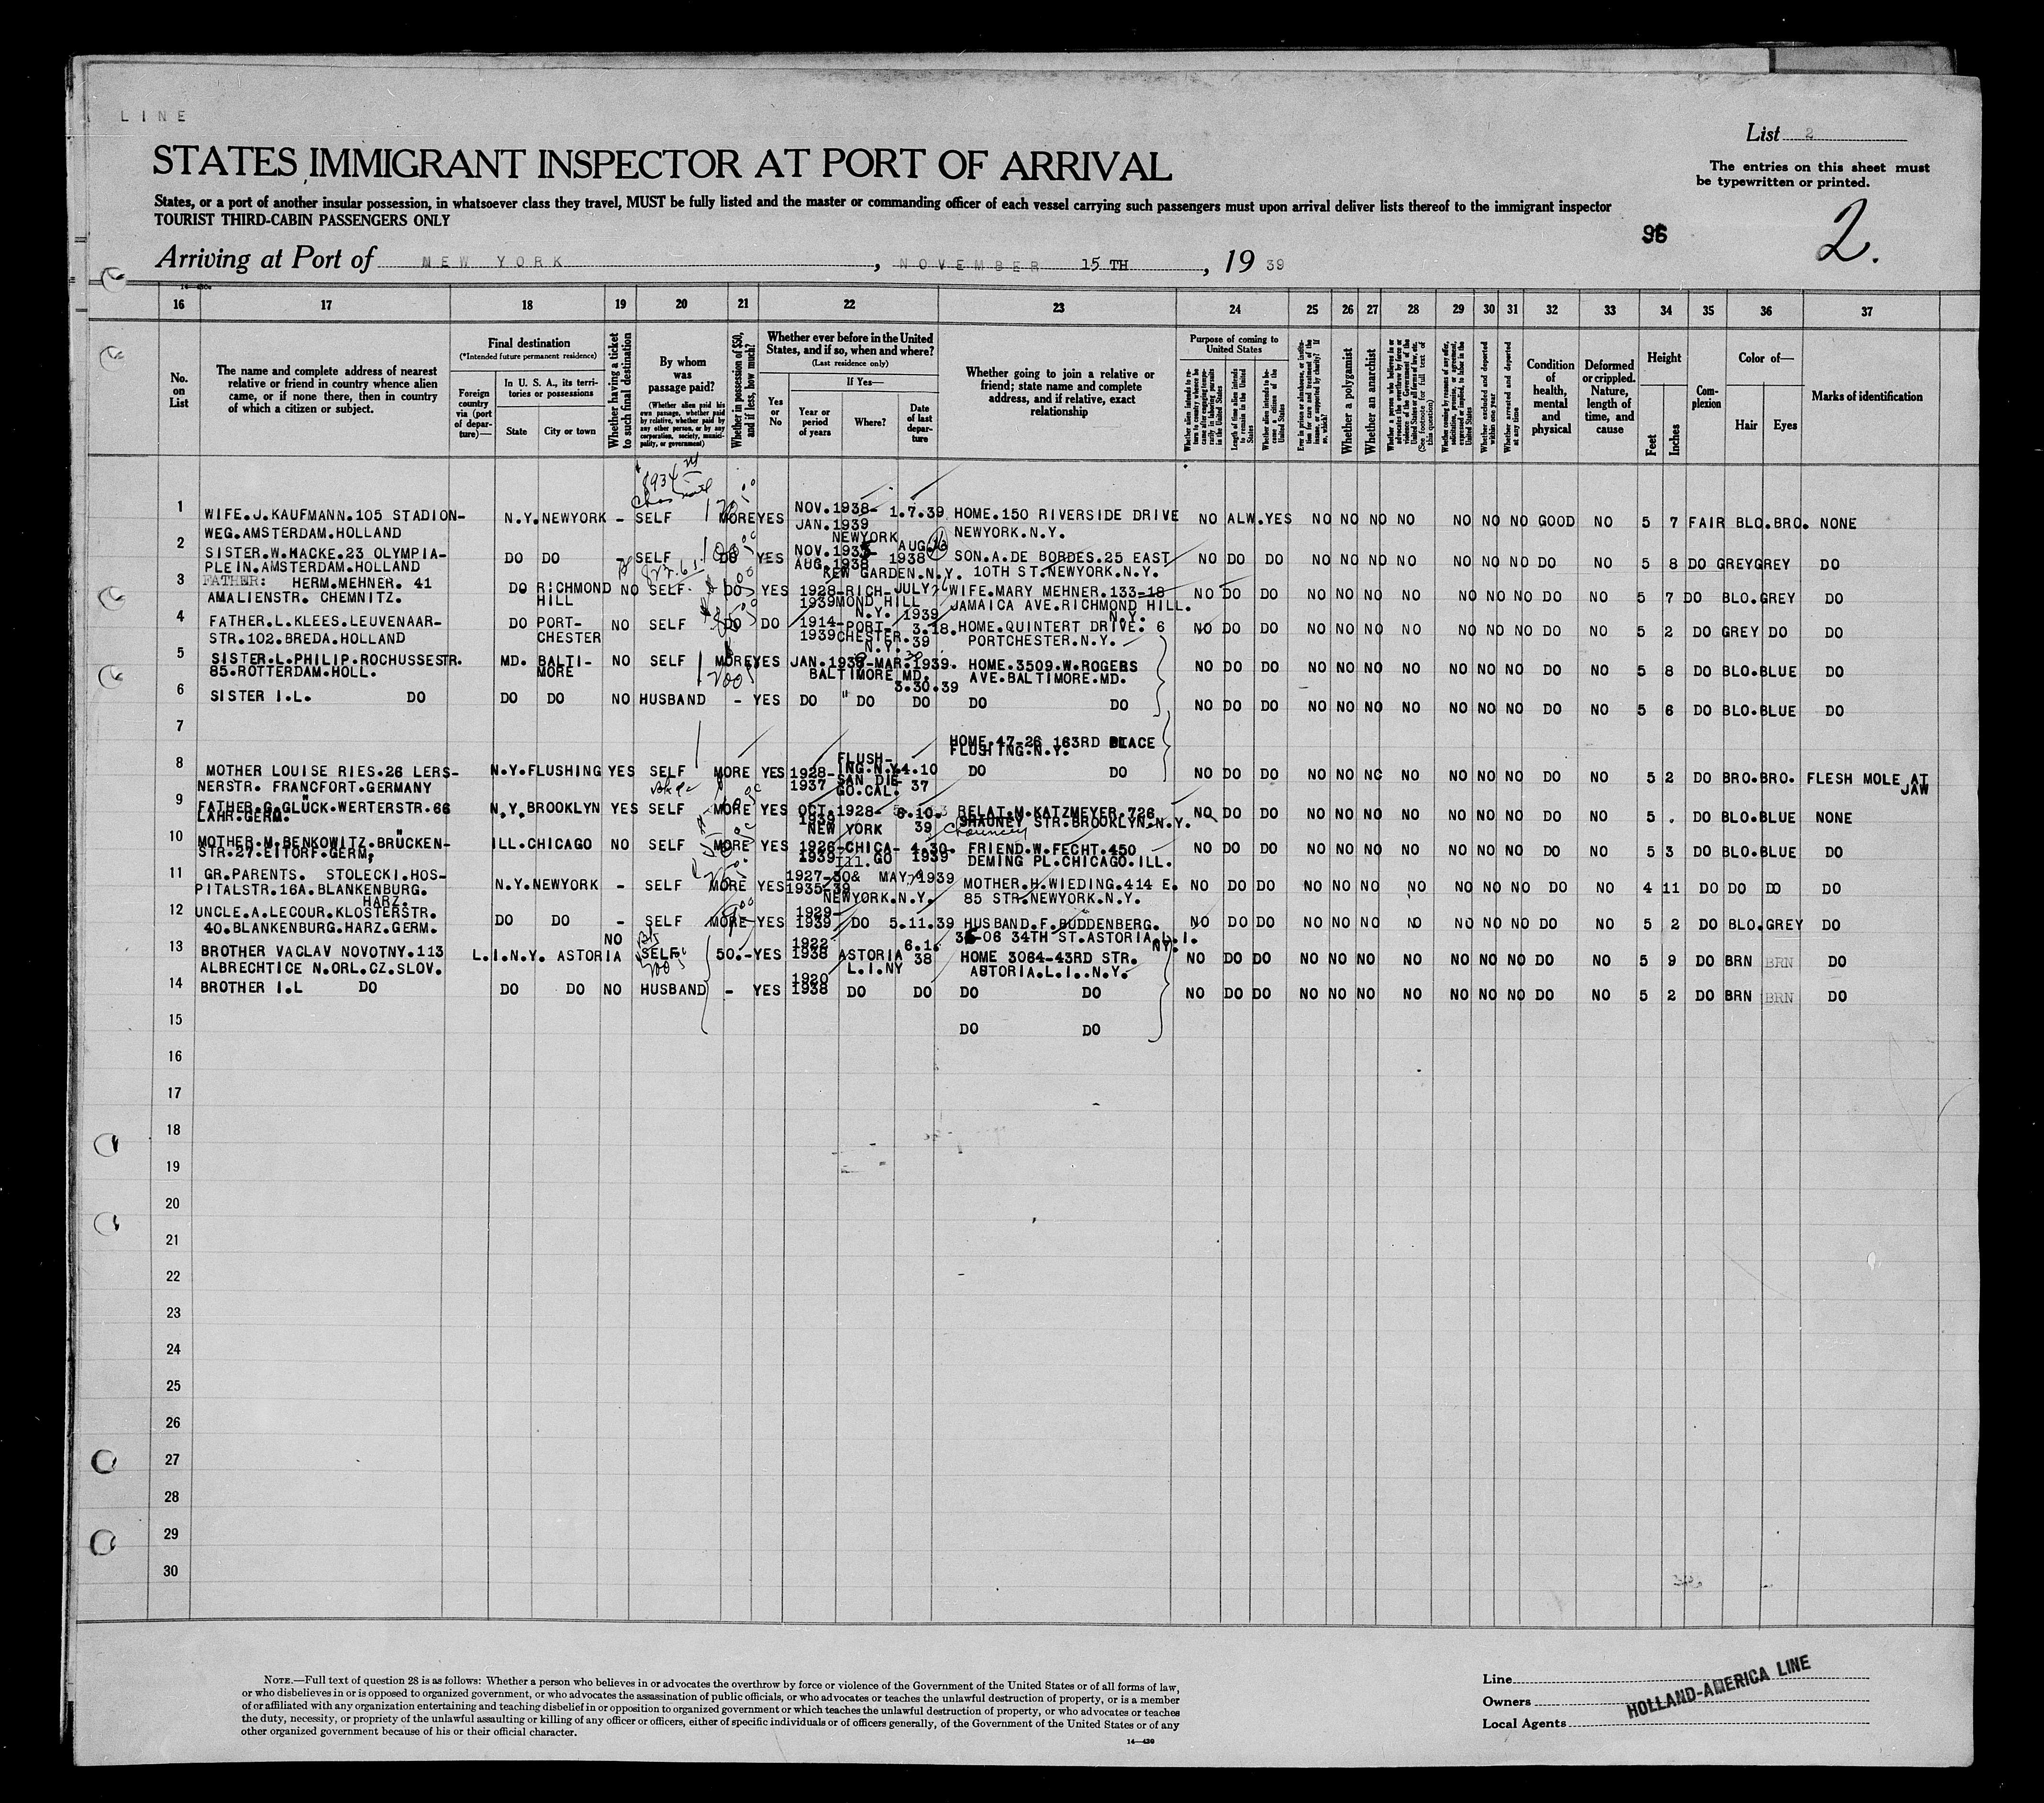 LINE
List 2
STATES IMMIGRANT INSPECTOR AT PORT OF ARRIVAL
The entries on this sheet must
be typewritten or printed.
States, or a port of another insular possession, in whatsoever class they travel, MUST be fully listed and the master or commanding officer of each vessel carrying such passengers must upon arrival deliver lists thereof to the immigrant inspector
TOURIST THIRD-CABIN PASSENGERS ONLY
96
2.
Arriving at Port of NEW YORK, NOVEMBER 15TH, 19 39
16 17 18 19 20 21 22 23 24 25 26 27 28 29 30 31 32 33 34 35 36 37
No. on List
The name and complete address of nearest
relative or friend in country whence alien
came, or if none there, then in country
of which a citizen or subject.
Final destination
(*Intended future permanent residence)
Foreign country via (port of departure)—
In U. S. A., its territories or possessions
State
City or town
Whether having a ticket to such final destination
By whom was passage paid?
(Whether alien paid his own passage, whether paid by relative, whether paid by any other person, or by any corporation, society, municipality, or government)
Whether in possession of $50, and if less, how much?
Whether ever before in the United States, and if so, when and where?
(Last residence only)
Yes or No
If Yes—
Year or period of years
Where?
Date of last departure
Whether going to join a relative or
friend; state name and complete
address, and if relative, exact
relationship
Purpose of coming to United States
Length of time alien intends to remain in the United States
Whether alien intends to become a citizen of the United States
Whether a polygamist
Whether an anarchist
Whether excluded and deported within one year
Whether arrested and deported at any time
Condition of health, mental and physical
Deformed or crippled. Nature, length of time, and cause
Height
Feet
Inches
Complexion
Color of—
Hair
Eyes
Marks of identification
1 WIFE.J.KAUFMANN.105 STADION- N.Y. NEWYORK - SELF MORE YES NOV.1938- 1.7.39 HOME.150 RIVERSIDE DRIVE NO ALW. YES NO NO NO NO NO NO NO GOOD NO 5 7 FAIR BLO. BRO. NONE
WEG.AMSTERDAM.HOLLAND JAN.1939 NEWYORK NEWYORK.N.Y.
2 SISTER.W.HACKE.23 OLYMPIA- DO DO - SELF DO YES AUG. SON.A.DE BORDES.25 EAST NO DO DO NO NO NO NO NO NO NO DO NO 5 8 DO GREY GREY DO
PLEIN.AMSTERDAM.HOLLAND AUG.1938 KEW GARDEN.N.Y. 1938 10TH ST.NEWYORK.N.Y.
3 FATHER: HERM.MEHNER. 41 DO RICHMOND NO SELF. DO YES 1928- RICH- JULY WIFE.MARY MEHNER.133-18 NO DO DO NO NO NO NO NO NO NO DO NO 5 7 DO BLO. GREY DO
AMALIENSTR. CHEMNITZ. HILL 1939 MOND HILL N.Y. 1939 JAMAICA AVE.RICHMOND HILL. N.Y.
4 FATHER.L.KLEES.LEUVENAAR- DO PORT- NO SELF DO DO 1914- PORT- 3.18. HOME.QUINTERT DRIVE. 6 NO DO DO NO NO NO NO NO NO NO DO NO 5 2 DO GREY DO DO
STR.102.BREDA.HOLLAND CHESTER 1939 CHESTER. N.Y. 39 PORTCHESTER.N.Y.
5 SISTER.L.PHILIP.ROCHUSSESTR. MD. BALTI- NO SELF MORE YES JAN.1938-MAR.1939. HOME.3509.W.ROGERS NO DO DO NO NO NO NO NO NO NO DO NO 5 8 DO BLO. BLUE DO
85.ROTTERDAM.HOLL. MORE BALTIMORE MD. 3.30.39 AVE.BALTIMORE.MD.
6 SISTER I.L. DO DO DO NO HUSBAND - YES DO " DO DO DO DO NO DO DO NO NO NO NO NO NO NO DO NO 5 6 DO BLO. BLUE DO
7 HOME.47-26 163RD PLACE
FLUSHING.N.Y.
8 MOTHER LOUISE RIES.26 LERS- N.Y. FLUSHING YES SELF MORE YES 1928- FLUSH-ING.N.Y. 4.10 DO DO NO DO DO NO NO NO NO NO NO NO DO NO 5 2 DO BRO. BRO. FLESH MOLE AT JAW
NERSTR. FRANCFORT.GERMANY 1937 SAN DIE-GO.CAL. 37
9 FATHER.G.GLÜCK.WERTERSTR.66 N.Y. BROOKLYN YES SELF MORE YES OCT.1928- 6.10. RELAT.M.KATZMEYER.726 NO DO DO NO NO NO NO NO NO NO DO NO 5 . DO BLO. BLUE NONE
LAHR.GERM. 1939 NEW YORK 39 SHAUNEY STR.BROOKLYN.N.Y.
Chauncey
10 MOTHER.M.BENKOWITZ.BRÜCKEN- ILL. CHICAGO NO SELF MORE YES 1926- CHICA- 4.30. FRIEND.W.FECHT.450 NO DO DO NO NO NO NO NO NO NO DO NO 5 3 DO BLO. BLUE DO
STR.27.EITORF.GERM. 1939 Ill. GO 1939 DEMING PL.CHICAGO.ILL.
11 GR.PARENTS. STOLECKI.HOS- N.Y. NEWYORK - SELF MORE YES 1927-30& MAY 1939 MOTHER.H.WIEDING.414 E. NO DO DO NO NO NO NO NO NO NO DO NO 4 11 DO DO DO DO
PITALSTR.16A.BLANKENBURG. HARZ. 1935-39 NEWYORK.N.Y. 85 STR.NEWYORK.N.Y.
12 UNCLE.A.LECOUR.KLOSTERSTR. DO DO - SELF MORE YES 1929- 1939 DO 5.11.39 HUSBAND.F.BUDDENBERG. NO DO DO NO NO NO NO NO NO NO DO NO 5 2 DO BLO. GREY DO
40.BLANKENBURG.HARZ.GERM. 34TH ST.ASTORIA.L.I. NY.
13 BROTHER VACLAV NOVOTNY.113 L.I.N.Y. ASTORIA NO SELF 50.- YES 1922 1938 ASTORIA L.I.NY 6.1. 38 HOME 3064-43RD STR. NO DO DO NO NO NO NO NO NO NO DO NO 5 9 DO BRN BRN DO
ALBRECHTICE N.ORL.CZ.SLOV. ASTORIA.L.I..N.Y.
14 BROTHER I.L DO DO DO NO HUSBAND - YES 1920 1938 DO DO DO DO NO DO DO NO NO NO NO NO NO NO DO NO 5 2 DO BRN BRN DO
15 DO DO
16
17
18
19
20
21
22
23
24
25
26
27
28
29
30
NOTE.—Full text of question 28 is as follows: Whether a person who believes in or advocates the overthrow by force or violence of the Government of the United States or of all forms of law,
or who disbelieves in or is opposed to organized government, or who advocates the assassination of public officials, or who advocates or teaches the unlawful destruction of property, or is a member
of or affiliated with any organization entertaining and teaching disbelief in or opposition to organized government or which teaches the unlawful destruction of property, or who advocates or teaches
the duty, necessity, or propriety of the unlawful assaulting or killing of any officer or officers, either of specific individuals or of officers generally, of the Government of the United States or of any
other organized government because of his or their official character.
14—420
Line
Owners
Local Agents
HOLLAND-AMERICA LINE